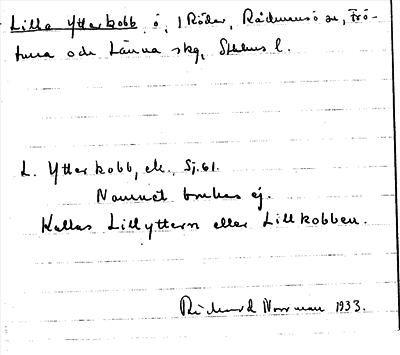 Lilla Ytterkobb, ö, i Röder, Rådmansö sn, Frö-
tuna och Länna skg, Sthlms l.
L. Ytterkobb, ek. Sj.61.
Namnet brukas ej.
Kallas Lillyttern eller Lillkobben.
Richard Norrman 1933.